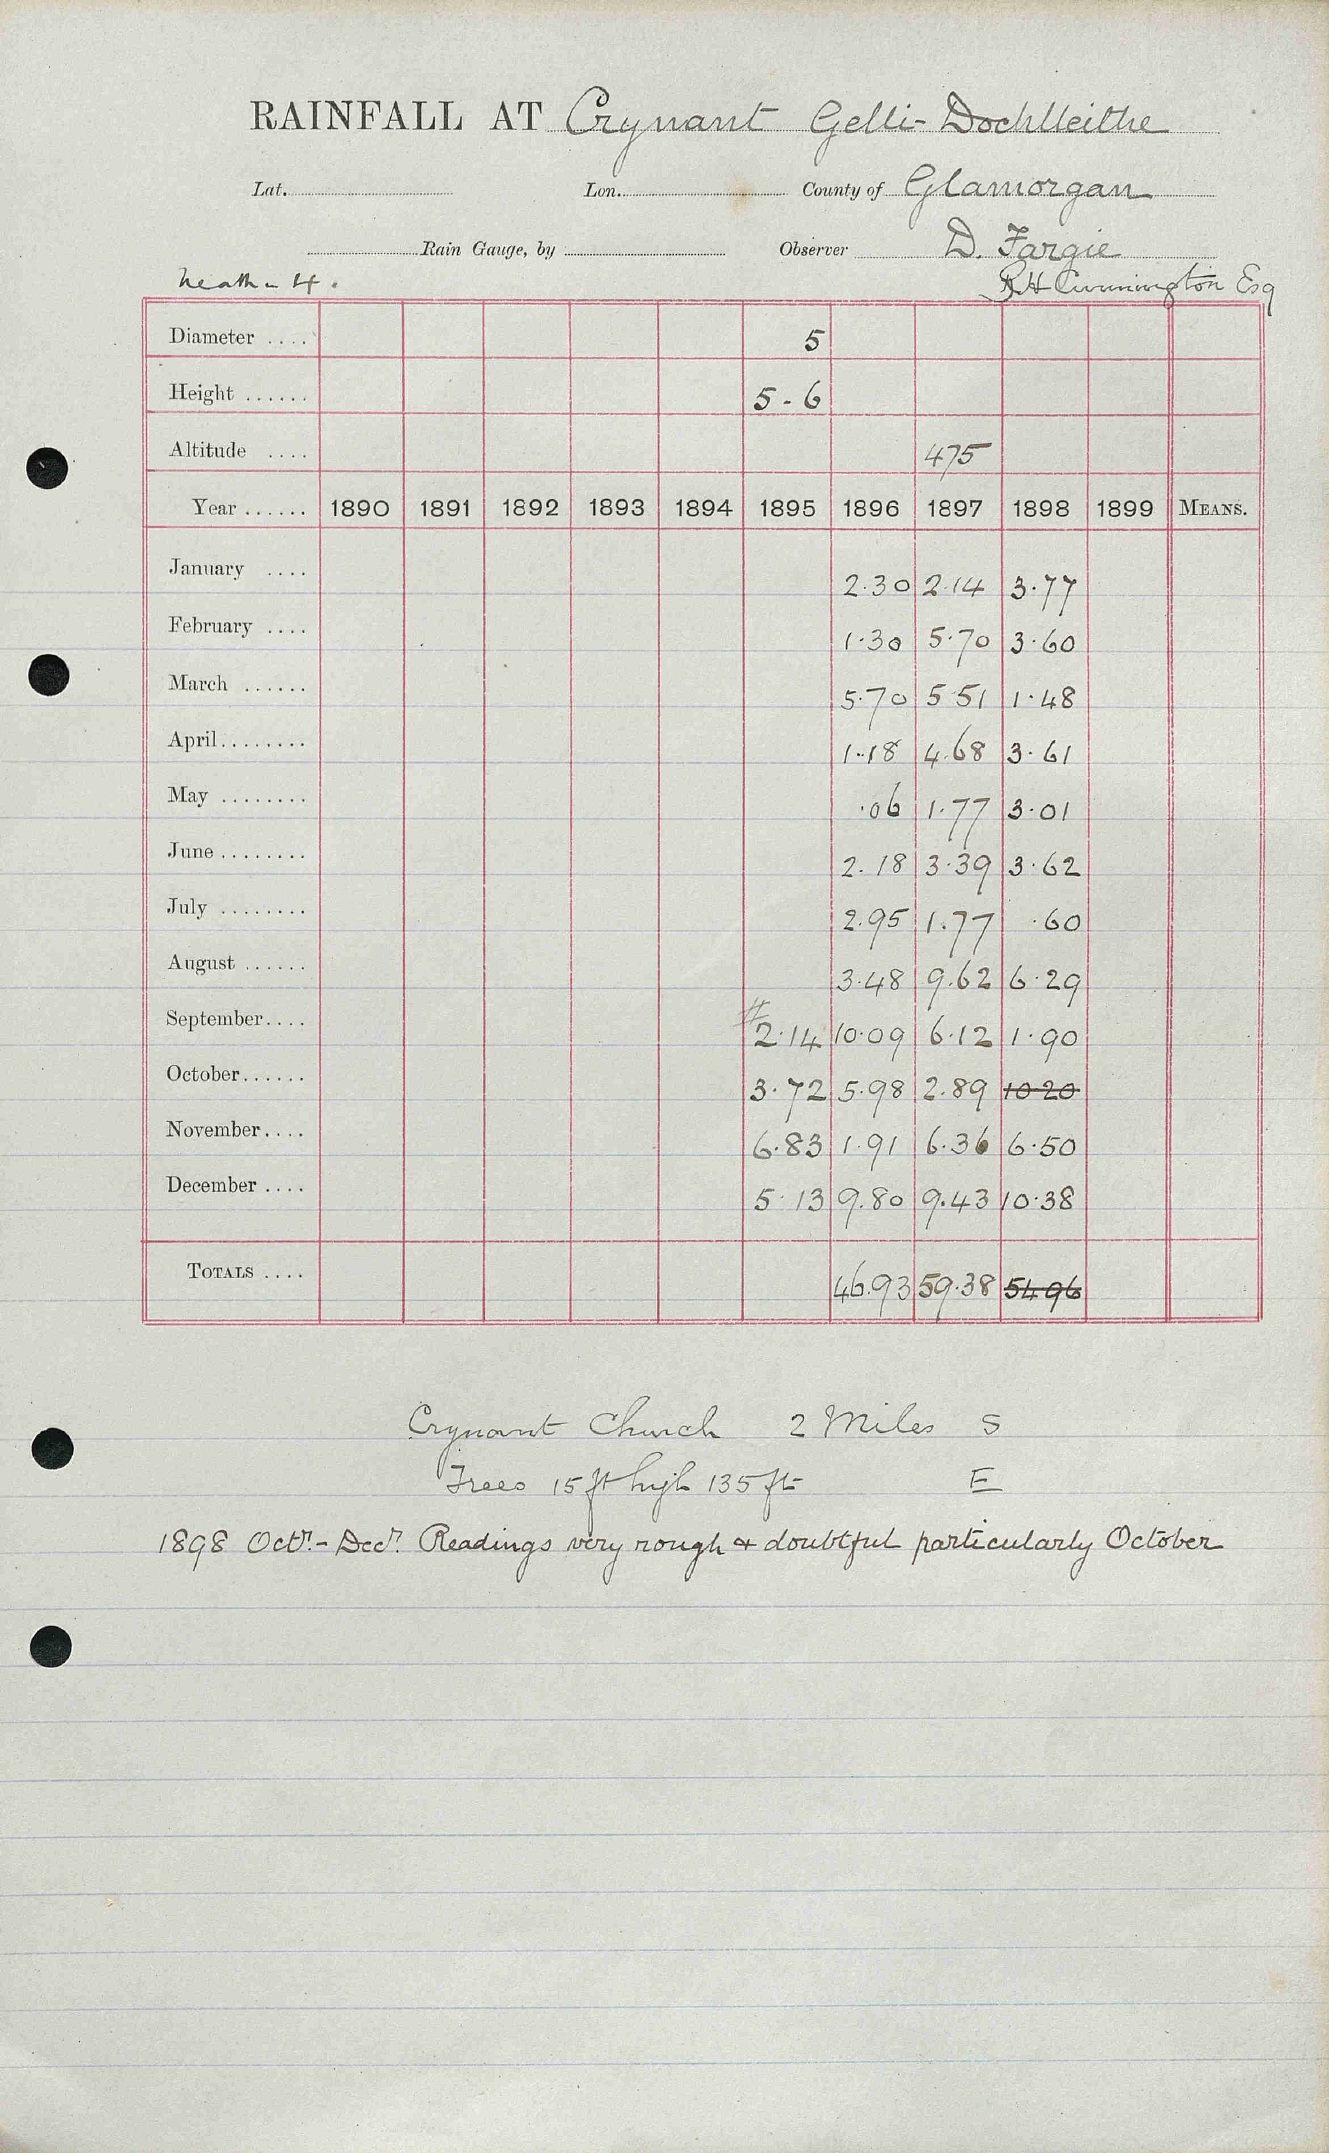 RAINFALL AT Crynant Gelli-Dochlleithe
Lat. Lon. County of Glamorgan
Rain Gauge, by Observer D. Fargie
Neath 4. R H Cunnington Esq
Diameter .... 5
Height ...... 5 - 6
Altitude .... 475
Year ...... 1890 1891 1892 1893 1894 1895 1896 1897 1898 1899 MEANS.
January .... 2.30 2.14 3.77
February .... 1.30 5.70 3.60
March ...... 5.70 5 51 1.48
April........ 1.18 4.68 3.61
May ........ .06 1.77 3.01
June ........ 2.18 3.39 3.62
July ........ 2.95 1.77 .60
August ...... 3.48 9.62 6.29
September.... #2.14 10.09 6.12 1.90
October...... 3.72 5.98 2.89 10 20
November.... 6.83 1.91 6.36 6.50
December .... 5.13 9.80 9.43 10.38
TOTALS .... 46.93 59.38 54 96
Crynant Church 2 Miles S
Trees 15 ft high 135 ft E
1898 Octr. - Decr. Readings very rough & doubtful particularly October